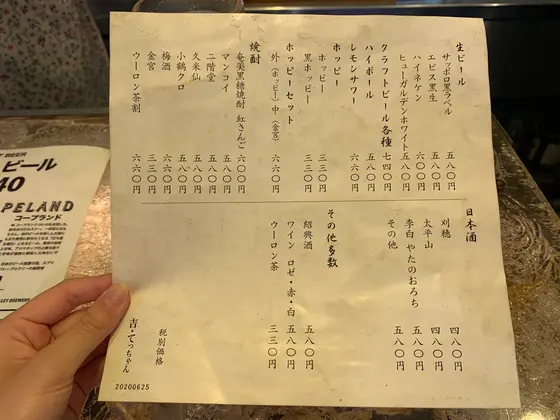 生ビール
サッポロ黒ラベル 五八〇円
エビス黒生 五八〇円
ハイネケン 六〇〇円
ヒューガルデンホワイト 五八〇円
クラフトビール各種 七四〇円
ハイボール 五八〇円
レモンサワー 六六〇円
ホッピー
ホッピー 三三〇円
黒ホッピー 三三〇円
ホッピーセット
外(ホッピー)中(金宮) 六六〇円
焼酎
奄美黒糖焼酎 紅さんご 六〇〇円
マンコイ 五八〇円
二階堂 五八〇円
久米仙 五八〇円
小鶴クロ 五八〇円
梅酒 六六〇円
金宮 三三〇円
ウーロン茶割 六六〇円
日本酒
刈穂 四八〇円
太平山 四八〇円
李白 やたのおろち 五八〇円
その他 五八〇円
その他多数
紹興酒 五八〇円
ワイン ロゼ・赤・白 五八〇円
ウーロン茶 三三〇円
税別価格
吉・てっちゃん
20200625
BEER
ビール
40
PELAND
コープランド